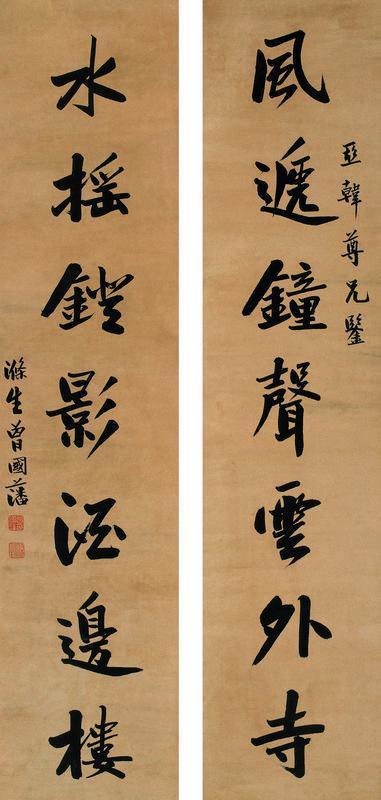 亞韓尊兄鑒
風遞鐘聲雲外寺
水摇鐙影酒邊樓
滌生曾國藩